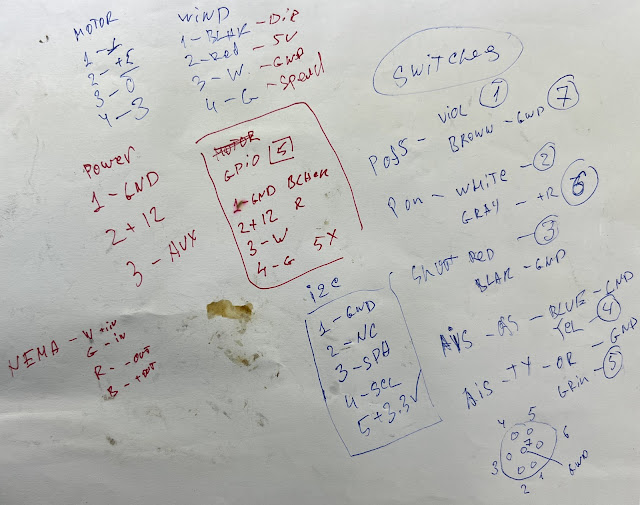 MOTOR
2 - +5
3 - 0
4 - 3
WIND
1 - BLAK - Dir
2 - Red - 5V
3 - W. - GND
4 - G - Speed
Switches
POS5 - VIOL 1
BROWN - GND 7
Pon - WHITE - 2
GRAY - +R 6
Shut RED - 3
BLAK - GND
AiS - GS - BLUE - GND
YEL - 4
AiS - TX - OR - GND
GRIN - 5
Power
1 - GND
2 + 12
3 - AUX
MOTOR
GPiO 5
1 - GND BLHAK
2 + 12 R
3 - W
4 - G 5X
i2c
1 - GND
2 - NC
3 - SDA
4 - SCL
5 + 3.3V
NEMA - W + iN
G - iN
R - - OUT
B - + OUT
4 5
3 7 6
2 1 GND